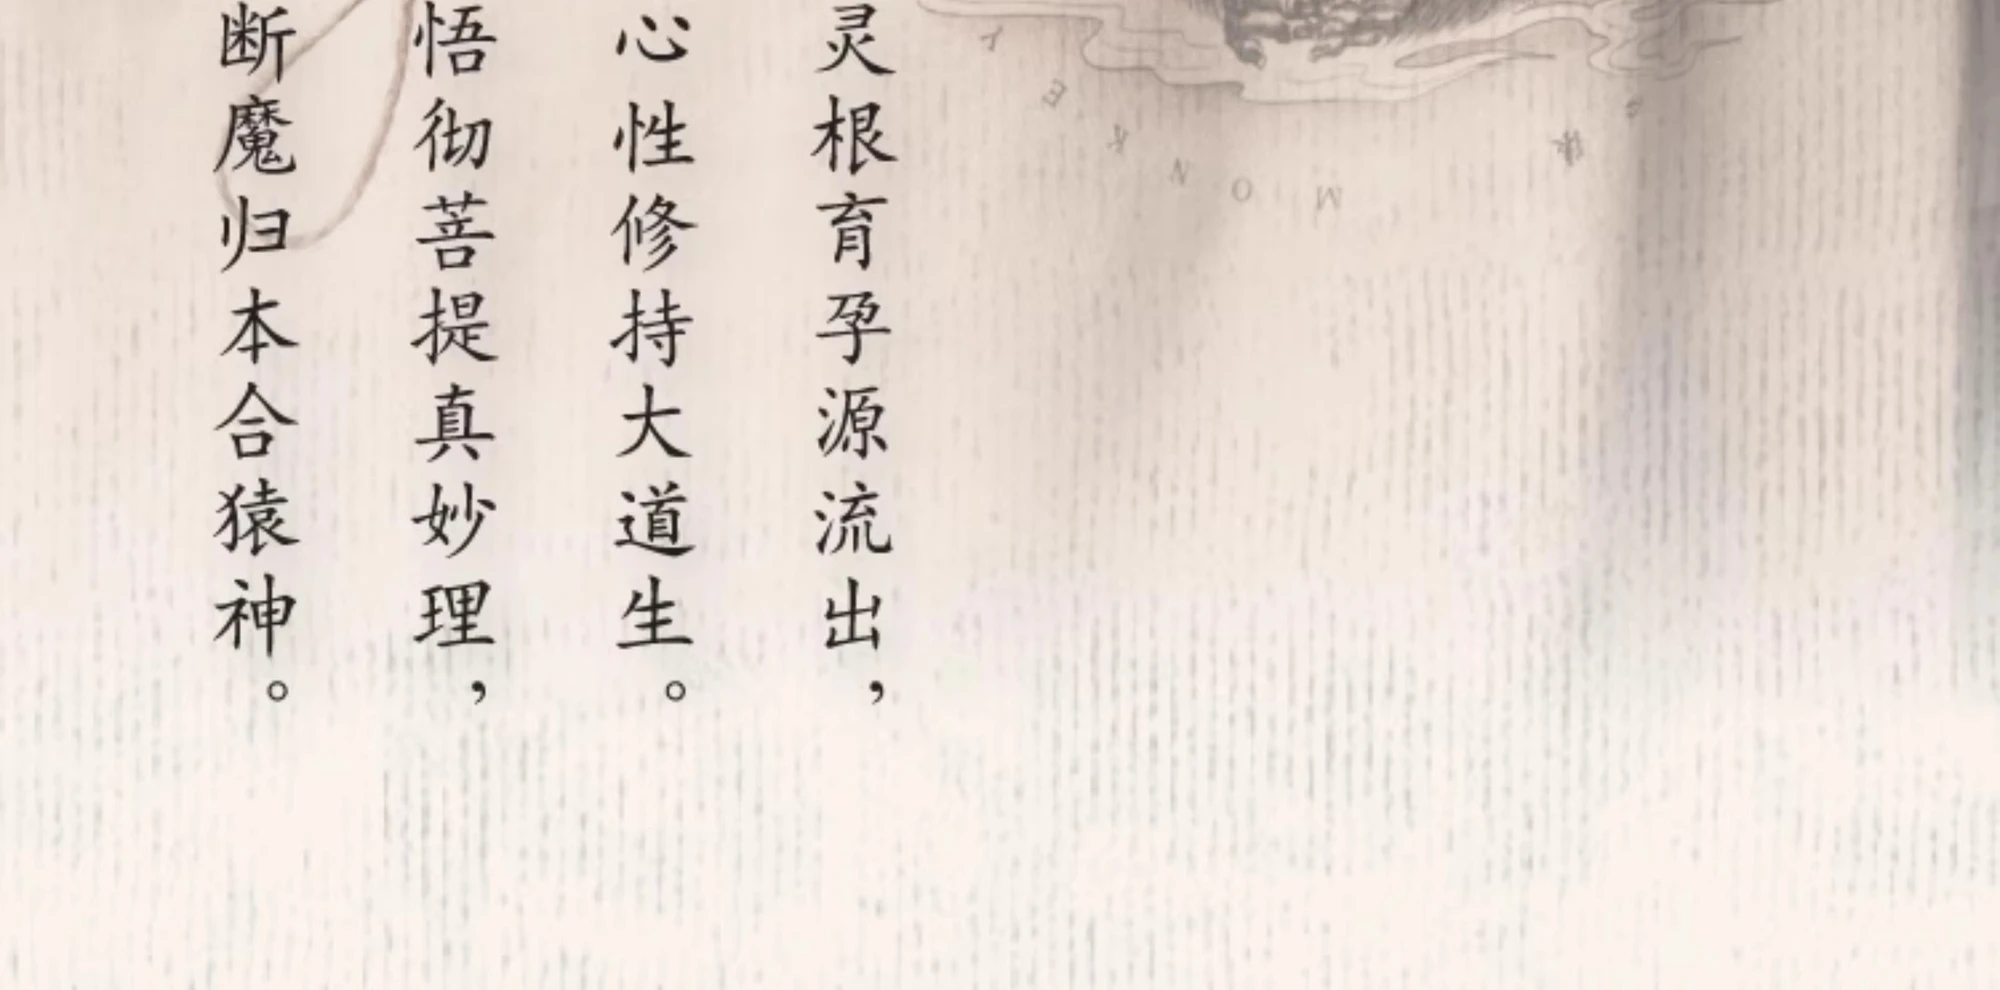 灵根育孕源流出，
心性修持大道生。
悟彻菩提真妙理，
断魔归本合猿神。